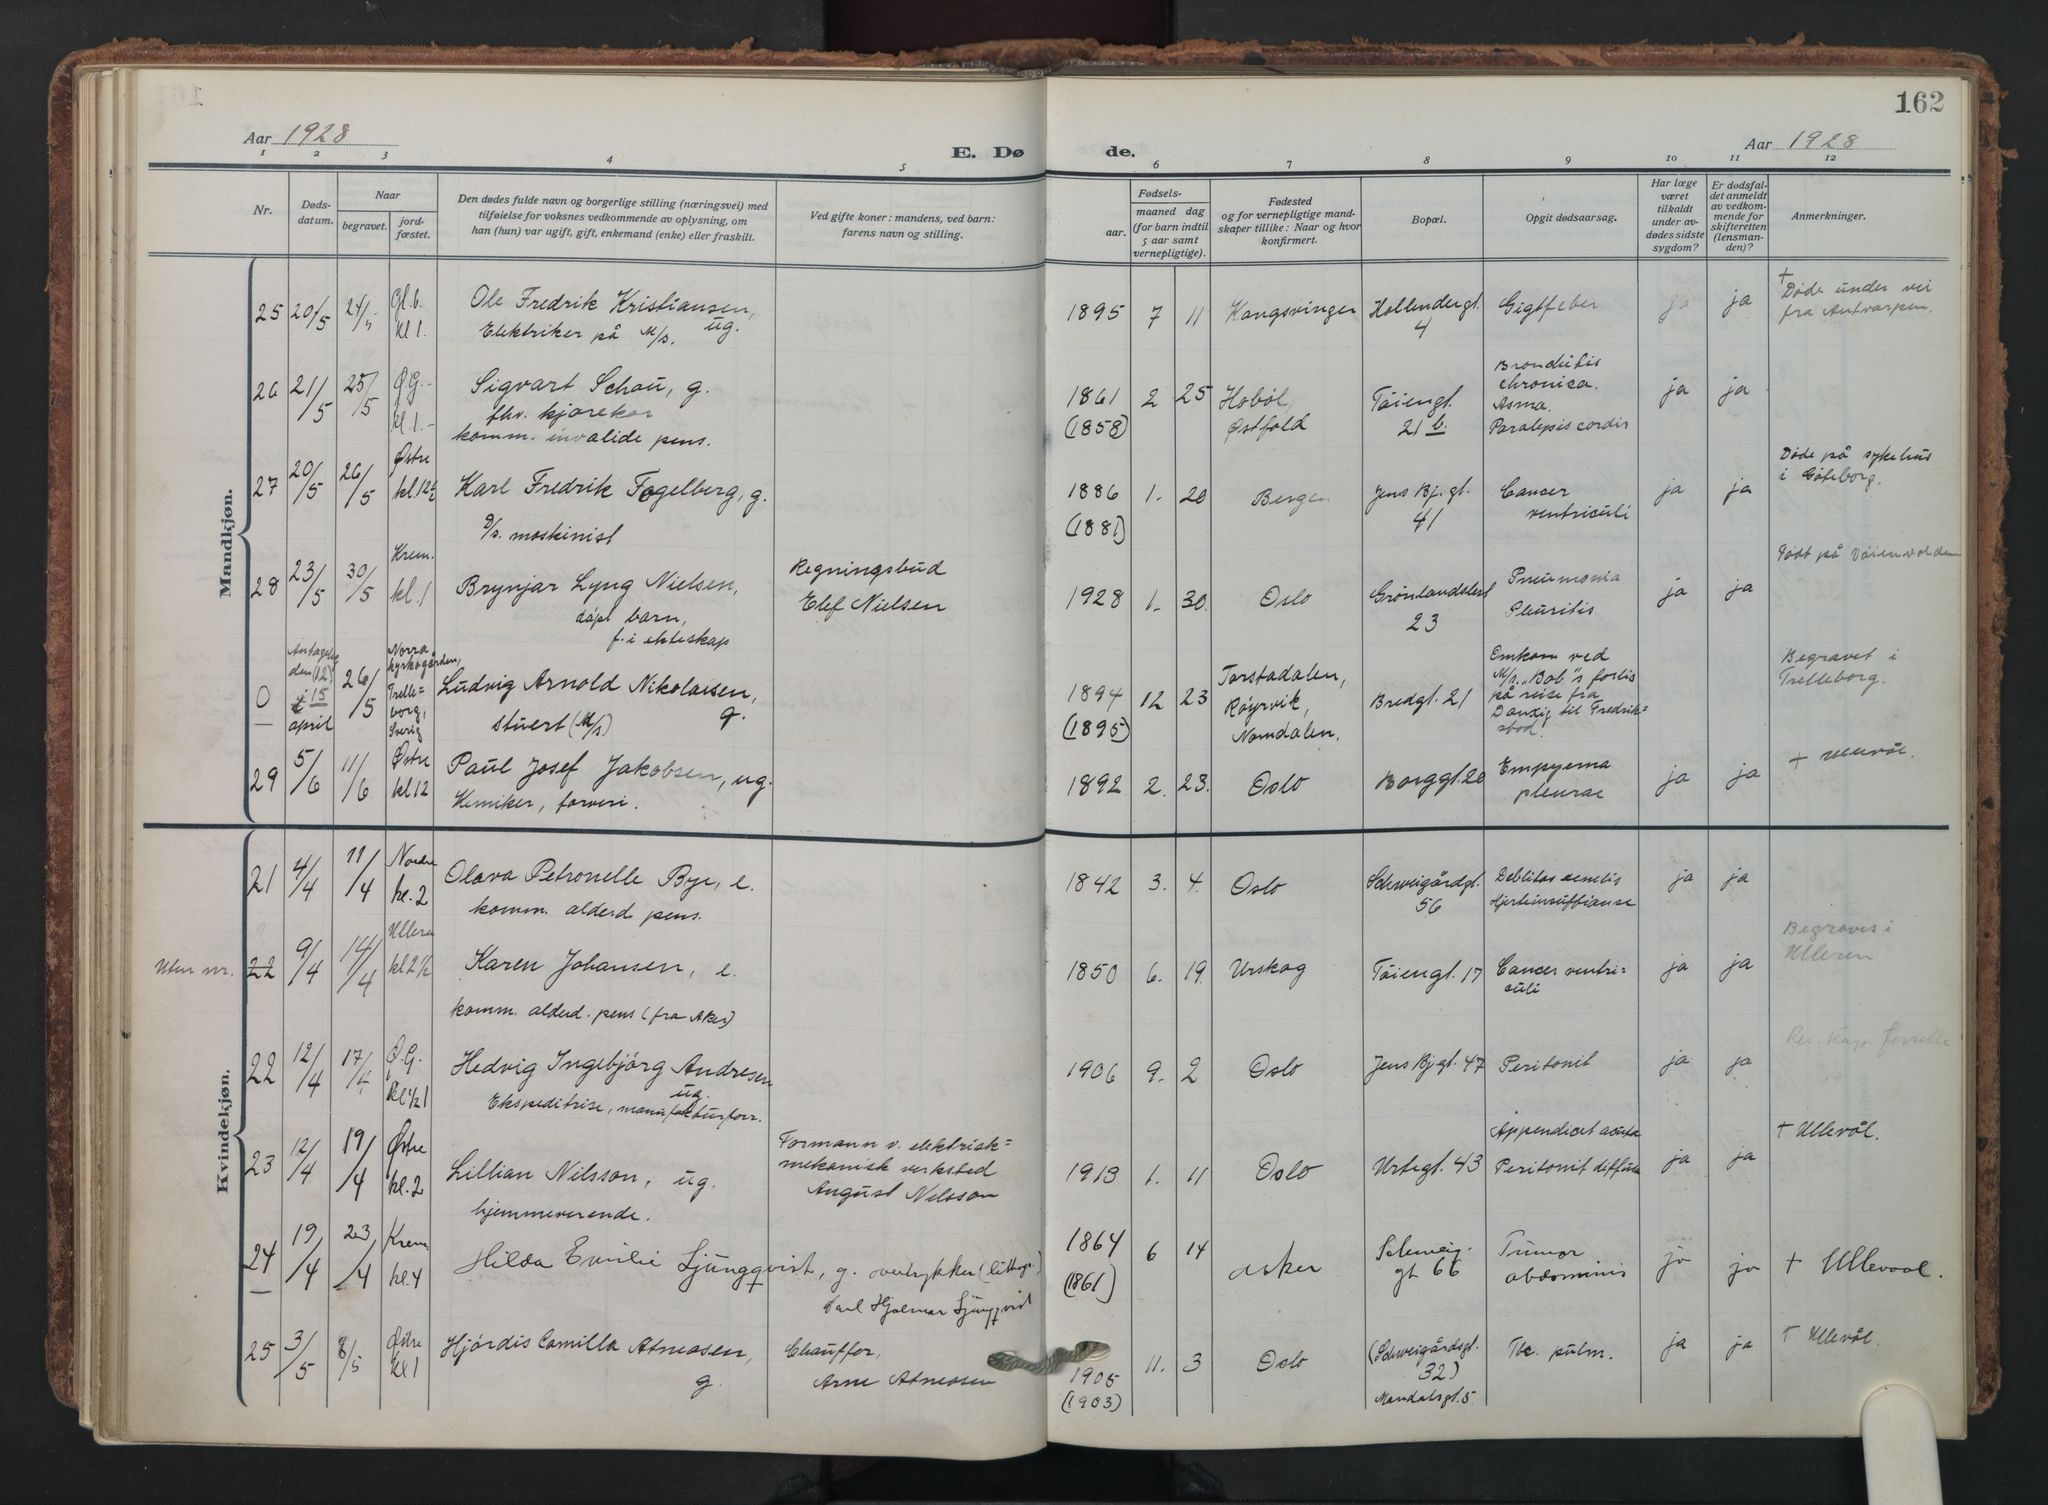 162
Aar 1928
E. Dø de.
Aar 1928
1 2 3 4 5 6 7 8 9 10 11 12
Nr.
Dødsdatum.
Naar
begravet.
jordfæstet.
Den dødes fulde navn og borgerlige stilling (næringsvei) med
tilføielse for voksnes vedkommende av oplysning, om
han (hun) var ugift, gift, enkemand (enke) eller fraskilt.
Ved gifte koner: mandens, ved barn:
farens navn og stilling.
Fødsels-
aar.
maaned dag
(for barn indtil
5 aar samt
vernepligtige).
Fødested
og for vernepligtige mand-
skaper tillike: Naar og hvor
konfirmert.
Bopæl.
Opgit dødsaarsag.
Har læge
været
tilkaldt
under av-
dødes sidste
sygdom?
Er dødsfal-
det anmeldt
av vedkom-
mende for
skifteretten
(lensman-
den)?
Anmerkninger.
Mandkjøn.
25 20/5 24/5 Gl.b. kl 1. Ole Fredrik Kristiansen, ug.
Elektriker på M/s.
1895 7 11 Kongsvinger Hollendergt. 4 Gigtfeber ja ja + Døde under vei
fra Antvarpen.
26 21/5 25/5 Ø.G. kl. 1. Sigvart Schou, g.
fhv. kjørekar
komm. invalide pens.
1861 (1858) 2 25 Hobøl, Østfold Tøiengt. 21 b.
chronica.
Asma.
cordis
ja ja
27 20/5 26/5 Østre kl 12½ Karl Fredrik Fogelberg, g.
maskinist
1886 (1881) 1. 20 Bergen Jens Bj. gt. 41 Cancer
ventriculi
ja ja Døde på sykehus
i Göteborg.
28 23/5 30/5 Krem. kl. 1 Brynjar Lyng Nielsen,
døpt barn,
f. i ekteskap
Regningsbud
Elef Nielsen
1928 1. 30. Oslo Grønlandsleret 23 Pneumonia
Pleuritis
ja ja Født på
0 Antagelig den (12) 15 april 26/5 Norra kyrkogården, Trelleborg, Sverig Ludvig Arnold Nikolaisen, g.
stuert (M/s)
1894 (1895) 12 23 Tarstadalen,
Røyrvik,
Namdalen.
Bredgt. 21 Omkom ved
M/s. "Bob"s forlis
på reise fra
Danzig til Fredrik-
stad.
Begravet i
Trelleborg.
29 5/6 11/6 Østre kl 12 Paul Josef Jakobsen, ug.
Kemiker,
1892 2. 23. Oslo Borggt. 20 Empyema
pleurae
ja ja + Ullevål.
Kvindekjøn.
21 4/4 11/4 Nordre kl. 2 Olava Petronelle Bye, e.
komm. alderd pens.
1842 3. 4. Oslo Schweigårdgt. 56 Deblitas senilis
ja ja
Uten nr. 22 9/4 14/4 Ulleren kl 2½ Karen Johansen, e.
komm. alderd. pens (fra Aker)
1850 6. 19. Urskog Tøiengt. 17 Cancer ventri-
culi
ja ja Begraves i
Ulleren
22 12/4 17/4 Ø.G. Hedvig Ingebjörg Andresen
ug.
Ekspeditrise, manufakturforr.
1906 9. 2 Oslo Jens Bj gt. 47 Peritonit ja ja Res. kap. forrette
23 12/4 19/4 Østre kl. 2 Lillian Nilsson, ug.
hjemmeverende.
Formann v. elektrisk-
mekanisk verksted
August Nilsson
1913 1. 11 Oslo Urtegt. 43 Appendicit acuta
Peritonit diffusa
ja ja + Ullevål.
24 19/4 23/4 Krem kl. 4 Hilda Emilie Ljüngqvist, g. overtrykker
Carl Hjalmar Ljüngqvist
1864 (1861) 6 14 Asker Schweig. gt 66 Tumor
abdominis
ja ja + Ullevaal.
25 3/5 8/5 Østre kl 1 Hjördis Camilla Atneosen,
g.
Chauffør,
Arne Atneosen
1905 (1903) 11. 3 Oslo (Schweigårdsgt. 32)
Mandalsgt. 5
Tbc. pulm. ja ja + Ullevål.